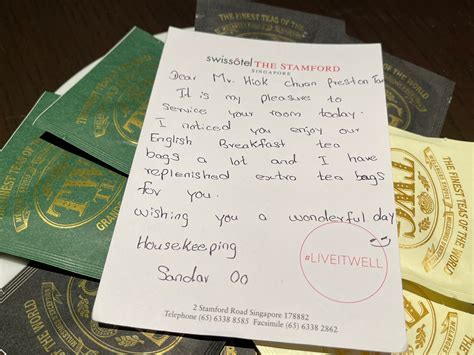 swissôtel THE STAMFORD
SINGAPORE
Dear Mr. Hiok Chuan Preston Tan
It is my pleasure to
service your room today.
I noticed you enjoy our
English Breakfast tea
bags a lot and I have
replenished extra tea bags
for you.
wishing you a wonderful day
Housekeeping
Sandar Oo
#LIVEITWELL
2 Stamford Road Singapore 178882
Telephone (65) 6338 8585 Facsimile (65) 6338 2862
THE FINEST TEAS OF THE WORLD
THE FINEST TEAS OF THE WORLD
TWG
THE FINEST TEAS OF THE WORLD
TWG
OF THE WORLD